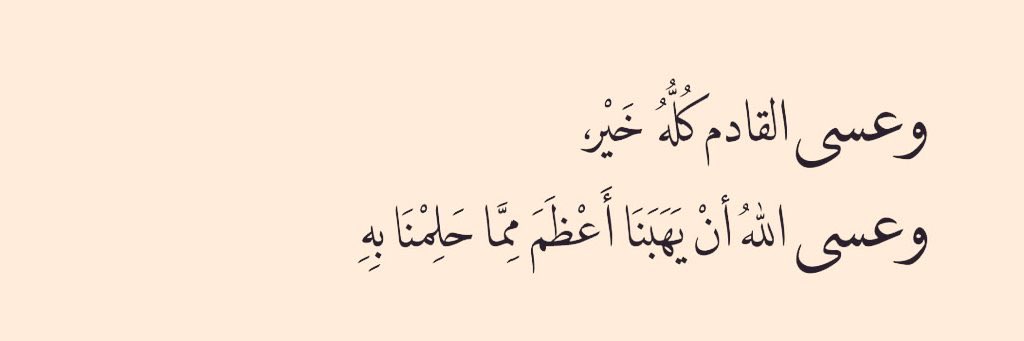 وعسى القادم كُلُّهُ خَيْر،
وعسى اللهُ أنْ يَهَبَنَا أَعْظَمَ مِمَّا حَلِمْنَا بِهِ